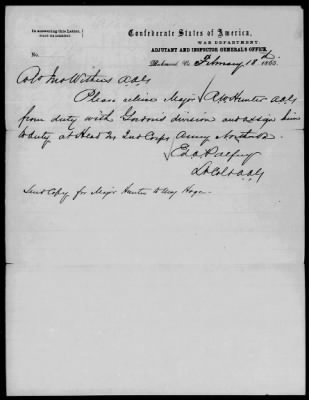 In answering this Letter,
Confederate States of America,
WAR DEPARTMENT,
ADJUTANT AND INSPECTOR GENERAL'S OFFICE,
No.
Richmond Va February 18th 1863.
Col Jno Withers A.A.G.
Please relieve Major R W Hunter AAG
from duty with Gordon's division and assign him
to duty at Head Qrs 2nd Corps Army North
Ed A Palfrey
Lt Col & AAG
Send Copy for Major Hunter to